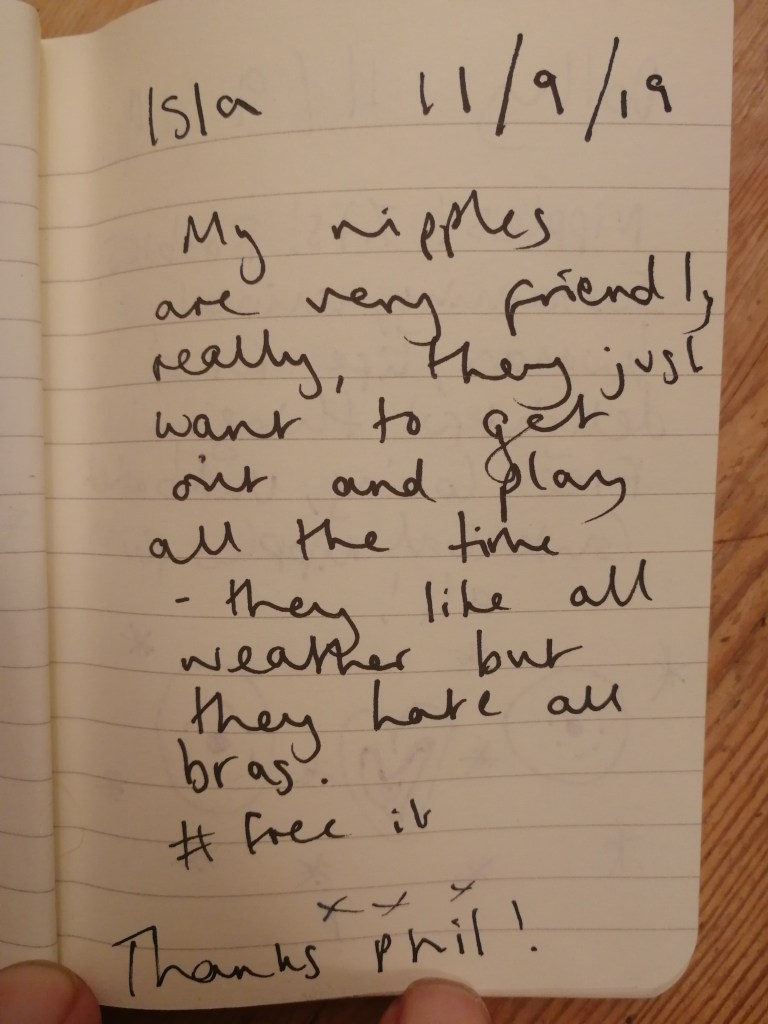 Isla 11/9/19
My nipples
are very friendly
really, they just
want to get
out and play
all the time
- they like all
weather but
they hate all
bras.
# free it
x x x
Thanks Phil!